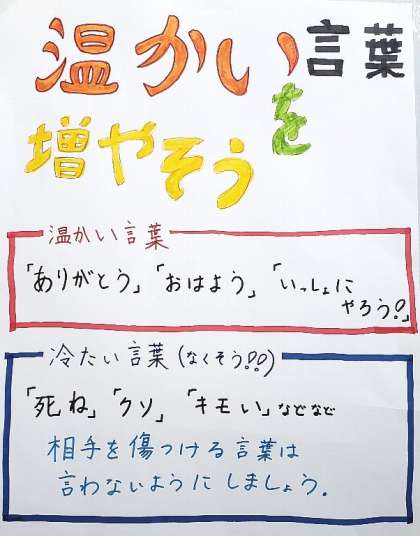 温かい言葉
を
増やそう
温かい言葉
「ありがとう」「おはよう」「いっしょに
やろう!」
冷たい言葉(なくそう!!)
「死ね」「クソ」「キモい」などなど
相手を傷つける言葉は
言わないようにしましょう.